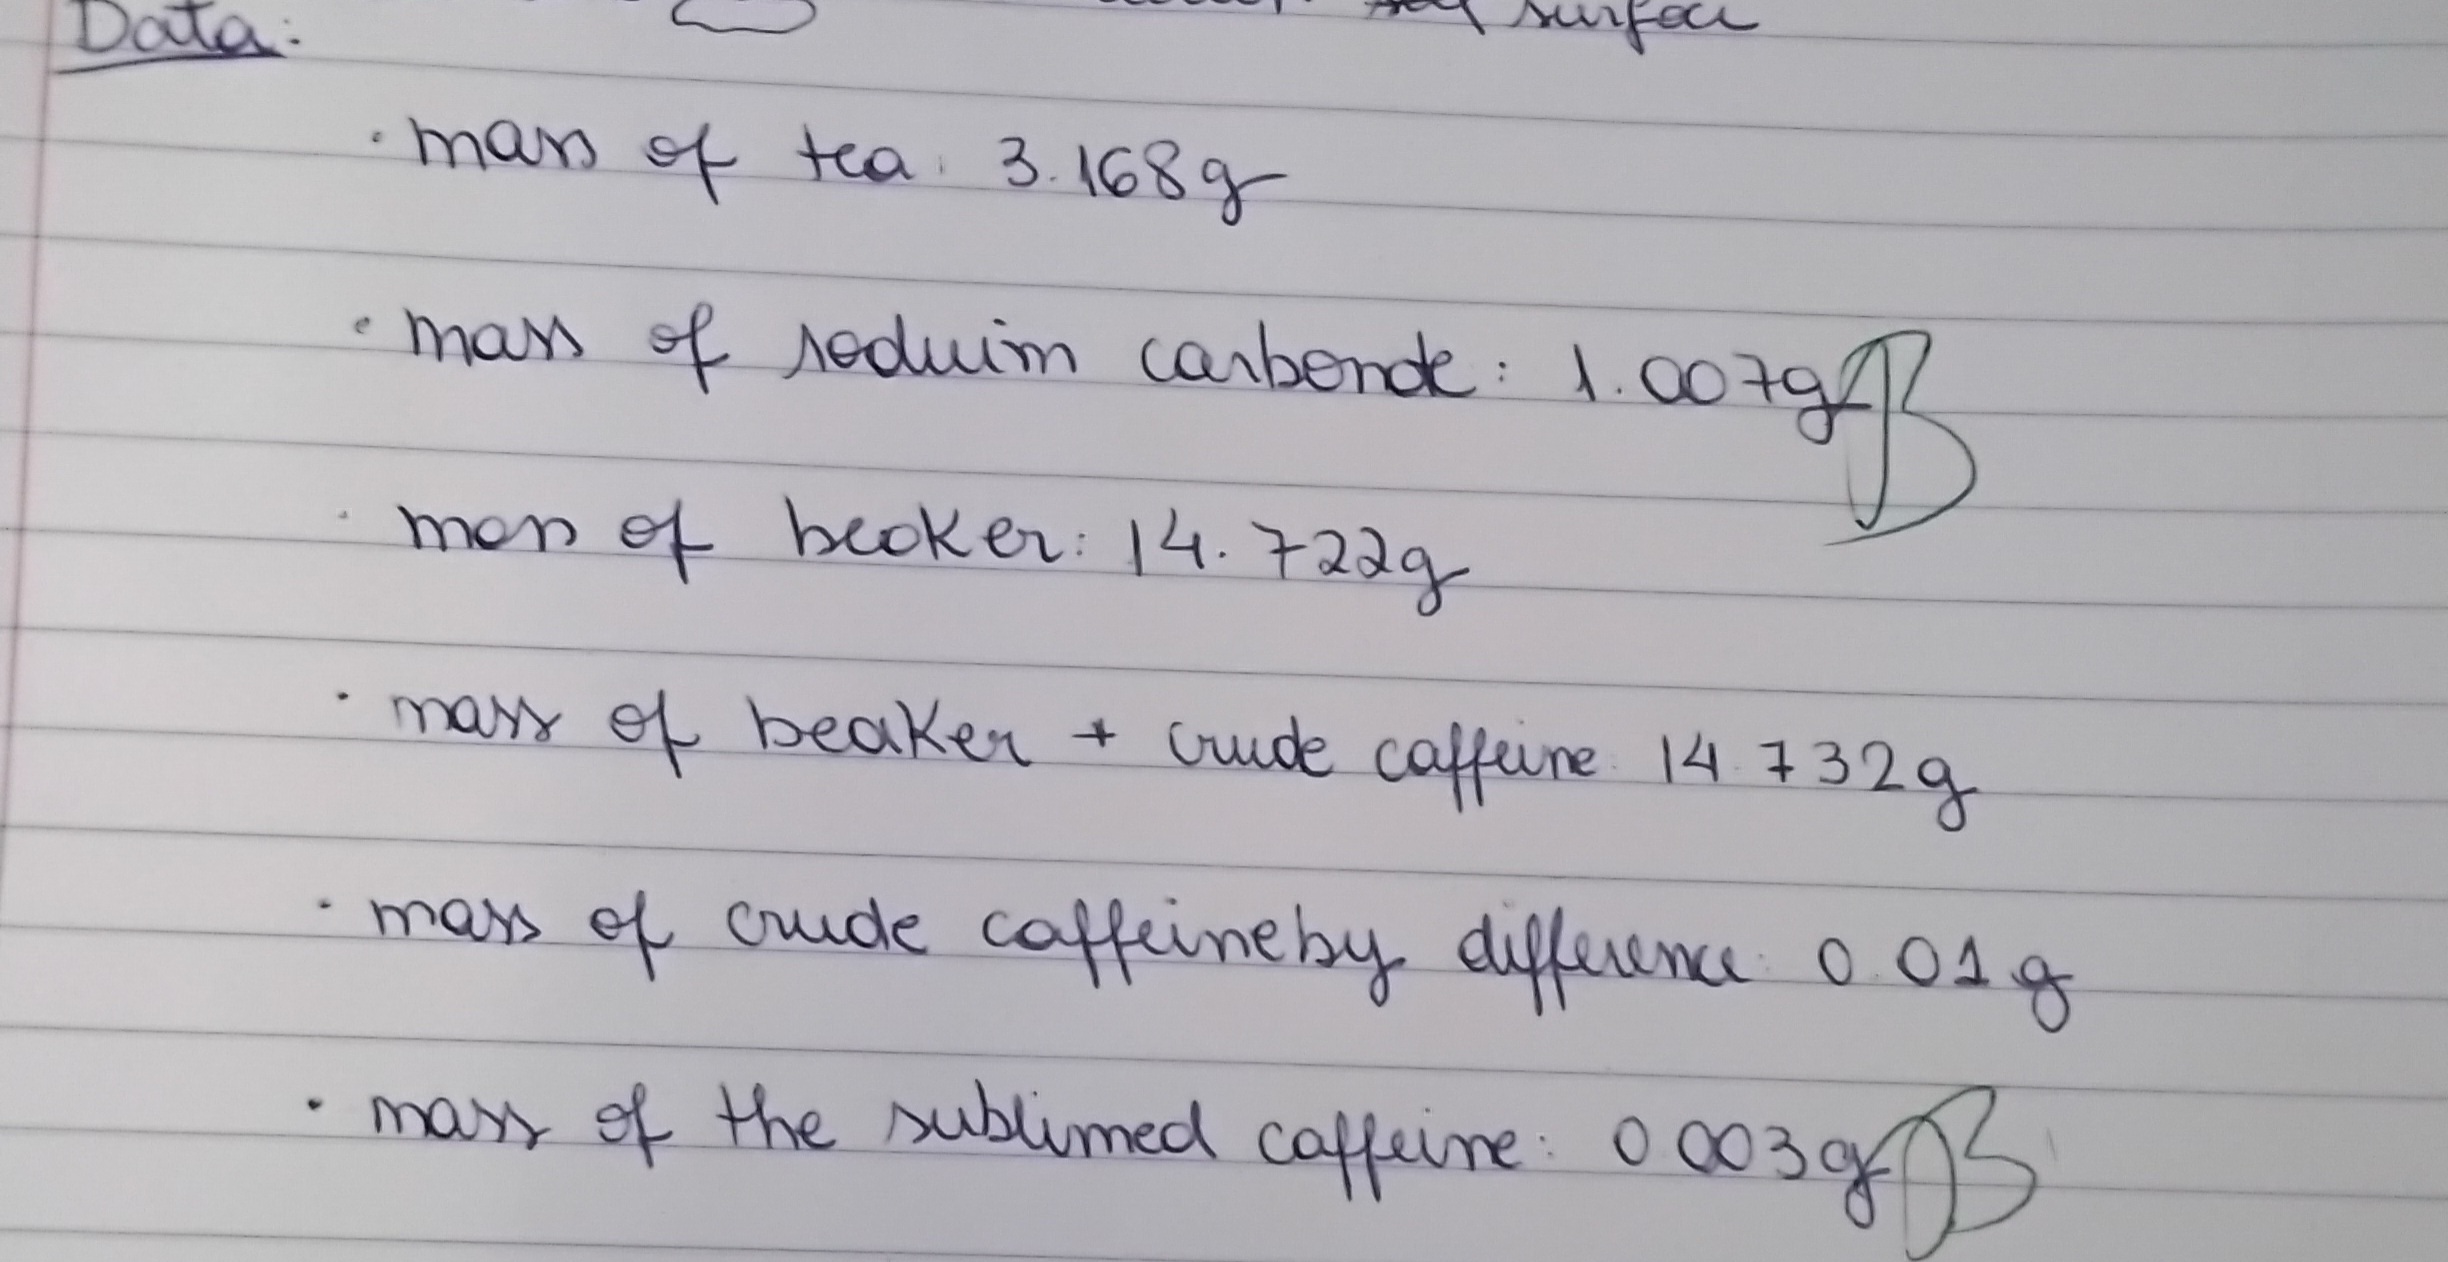 surface
Data:
· mass of tea: 3.168g
· mass of soduim carbonate: 1.007g
· mass of beaker: 14.722g
· mass of beaker + crude caffeine: 14.732g
· mass of crude caffeine by difference: 0.01g
· mass of the sublimed caffeine: 0.003g